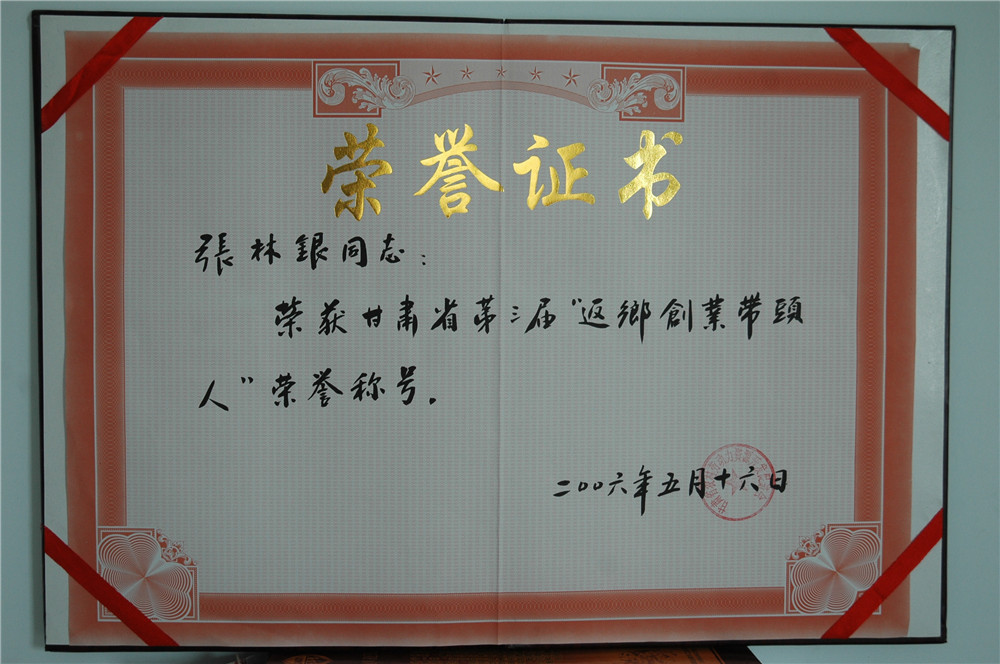 荣誉证书
張林銀同志：
荣获甘肃省第三届“返鄉創業带頭
人”荣誉称号。
二〇〇六年五月十六日